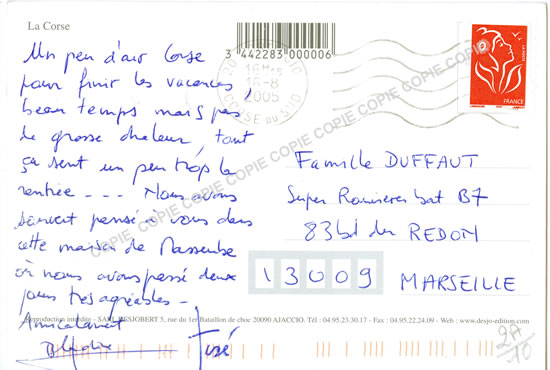 La Corse
3 442283 000006
16-8
2005
CORSE du SUD
LA POSTE
FRANCE
COPIE COPIE COPIE COPIE COPIE COPIE COPIE COPIE COPIE
Un peu d'air Corse
pour finir les vacances,
beau temps mais pas
de grosse chaleur, tout
ça sent un peu trop la
rentrée - - - Nous avons
souvent pensé à vous dans
cette maison de
où nous avons passé deux
jours très agréables -
Amicalement
José
Famille DUFFAUT
Super Rouvière bat B7
83 bd du REDON
13009 MARSEILLE
Reproduction interdite - SARL DESJOBERT 5, rue du 1er Bataillon de choc 20090 AJACCIO. Tél : 04.95.23.30.17 - Fax : 04.95.22.24.09 - Web : www.desjo-edition.com
2A
10